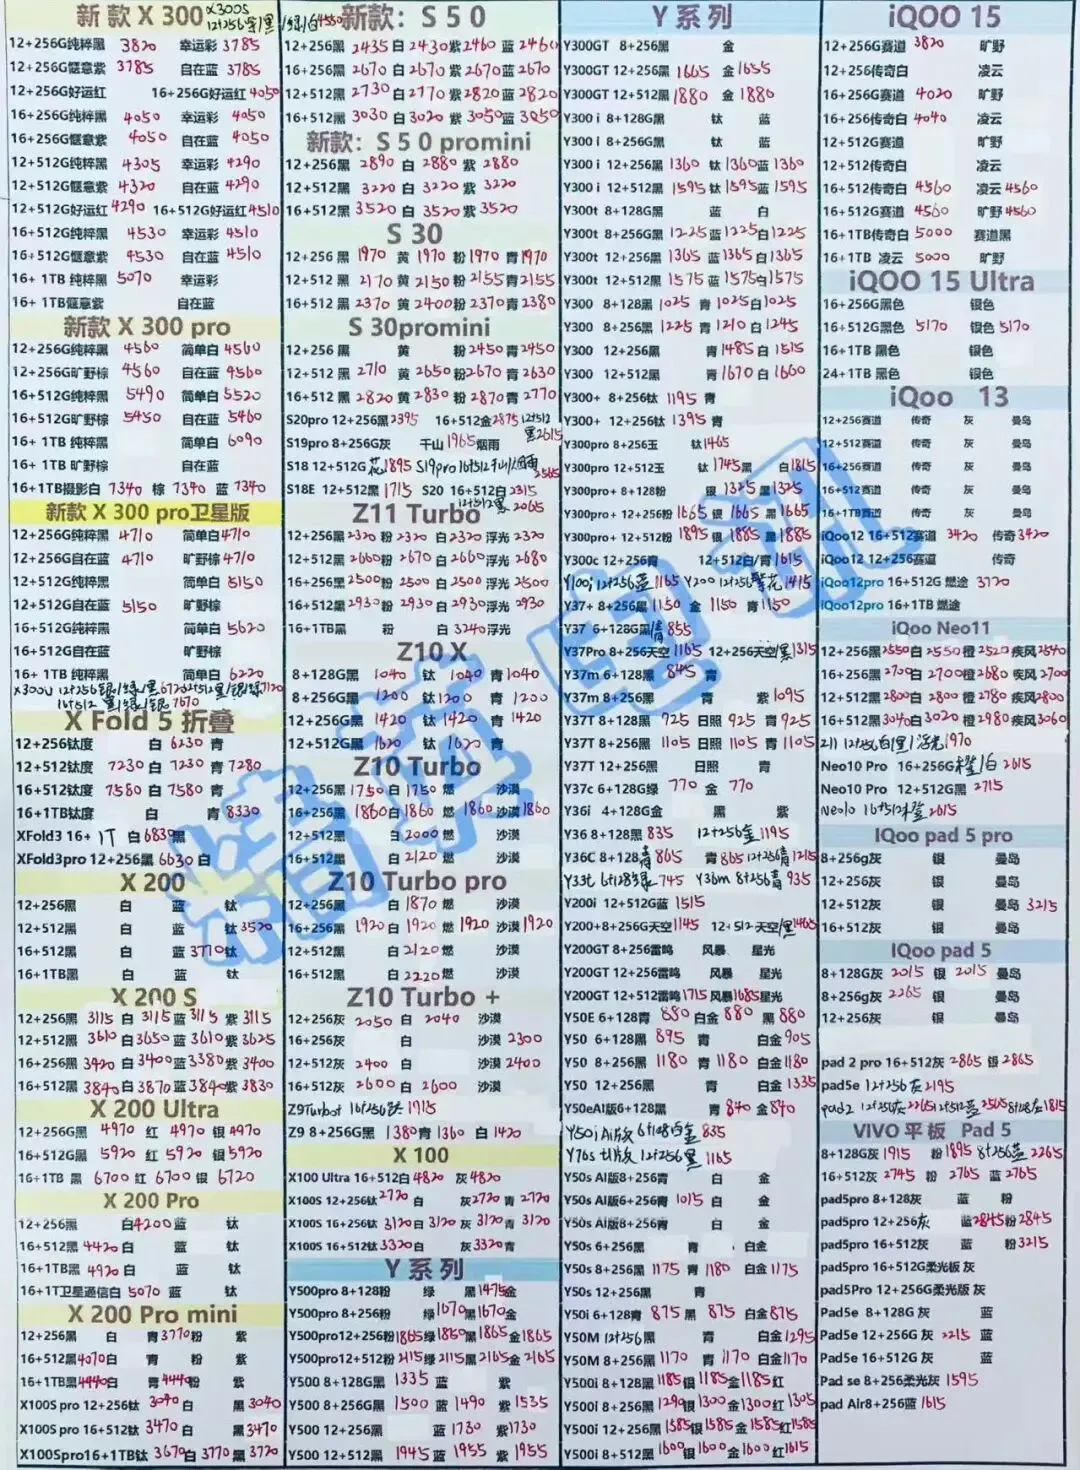 新款 X 300 X300S
12+256 黑/绿/白4550
12+256G纯粹黑 3820 幸运彩 3785
12+256G惬意紫 3785 自在蓝 3785
12+256G好运红 16+256G好运红 4050
16+256G纯粹黑 4050 幸运彩 4050
16+256G惬意紫 4050 自在蓝 4050
12+512G纯粹黑 4305 幸运彩 4290
12+512G惬意紫 4320 自在蓝 4290
12+512G好运红 4290 16+512G好运红4510
16+512G纯粹黑 4530 幸运彩 4510
16+512G惬意紫 4530 自在蓝 4510
16+ 1TB 纯粹黑 5070 幸运彩
16+ 1TB惬意紫 自在蓝
新款 X 300 pro
12+256G纯粹黑 4560 简单白 4560
12+256G旷野棕 4560 自在蓝 4560
16+512G纯粹黑 5490 简单白 5520
16+512G旷野棕 5450 自在蓝 5460
16+ 1TB 纯粹黑 简单白 6090
16+ 1TB 旷野棕 自在蓝
16+1TB摄影白 7340 棕 7340 蓝 7340
新款 X 300 pro卫星版
12+256G纯粹黑 4710 简单白4710
12+256G自在蓝 4710 旷野棕4710
12+512G纯粹黑 简单白 5150
12+512G自在蓝 5150 旷野棕
16+512G纯粹黑 简单白 5620
16+512G自在蓝 旷野棕
16+ 1TB 纯粹黑 简单白 6220
X300U 12+256银/绿/黑6720 12+512黑/银/绿7120
16+512 黑/绿/银7670
X Fold 5 折叠
12+256钛度 白 6230 青
12+512钛度 7230 白 7230 青 7280
16+512钛度 7580 白 7580 青
16+1TB钛度 白 青 8330
XFold3 16+ 1T 白 6830黑
XFold3pro 12+256黑 6630 白
X 200
12+256黑 白 蓝 钛
12+512黑 白 蓝 钛 3520
16+512黑 白 蓝 3770钛
16+1TB黑 白 蓝 钛
X 200 S
12+256黑 3115 白 3115 蓝 3115 紫 3115
12+512黑 3610 白 3650 蓝 3610 紫 3625
16+256黑 3420 白 3400 蓝 3380 紫 3400
16+512黑 3840 白 3870 蓝 3840 紫 3830
X 200 Ultra
12+256G黑 4970 红 4970 银 4970
16+512G黑 5920 红 5920 银 5920
16+1TB 黑 6700 红 6700 银 6720
X 200 Pro
12+256黑 白4200 蓝 钛
16+512黑 4420白 蓝 钛
16+1TB黑 4920白 蓝 钛
16+1T卫星通信白 5070 蓝 钛
X 200 Pro mini
12+256黑 白 青 3770粉 紫
16+512黑4070白 青 粉 紫
16+1TB黑4440白 青 4440粉 紫
X100S pro 12+256钛 3040 白 黑 3040
X100S pro 16+512钛 3470 白 黑 3470
X100Spro16+1TB钛 3670 白 3770 黑 3720
新款：S 5 0
12+256黑 2435 白 2430紫2460 蓝 2460
16+256黑 2670 白 2670 紫 2670蓝 2670
12+512黑 2730 白 2770 紫 2820 蓝 2820
16+512黑 3030 白 3020 紫 3050 蓝 3050
新款：S 5 0 promini
12+256黑 2890 白 2880 紫 2880
12+512黑 3220 白 3220 紫 3220
16+512黑 3520 白 3520 紫 3520
S 30
12+256 黑 1970 黄 1970 粉 1970 青 1970
12+512 黑 2170 黄 2150 粉 2155 青 2155
16+512 黑 2370 黄 2400 粉 2370 青 2380
S 30promini
12+256 黑 黄 粉 2450 青 2450
12+512 黑 2710 黄 2650 粉 2670 青 2630
16+512 黑 2820 黄 2830 粉 2870 青 2770
S20pro 12+256黑2395 16+512金2875 12+512
黑2615
S19pro 8+256G灰 千山 1965 烟雨
S18 12+512G 花1895 S19pro 16+512千山/烟雨
2565
S18E 12+512黑 1715 S20 16+512白 2315
12+512黑 2065
Z11 Turbo
12+256黑2320 粉 2320 白 2320 浮光 2320
12+512黑 2660粉 2670 白 2660 浮光 2680
16+256黑2500粉 2500 白 2500 浮光 2500
16+512黑2930粉 2930 白 2930浮光 2930
16+1TB黑 粉 白 3240浮光
Z10 X
8+128G黑 1040 钛 1040 青 1040
8+256G黑 1200 钛 1200 青 1200
12+256G黑 1420 钛 1420 青 1420
12+512G黑 1620 钛 1620 青
Z10 Turbo
12+256黑 1750白 1750 燃 沙漠
16+256黑 1860白1860 燃 1860 沙漠 1860
12+512黑 白 2000 燃 沙漠
16+512黑 白 2120 燃 沙漠
Z10 Turbo pro
12+256黑 白 1870 燃 沙漠
16+256黑 1920 白 1920 燃 1920 沙漠 1920
12+512黑 白 2120 燃 沙漠
16+512黑 白 2220 燃 沙漠
Z10 Turbo +
12+256灰 2050 白 2040 沙漠
16+256灰 白 沙漠 2300
12+512灰 2400 白 沙漠 2400
16+512灰 2600 白 2600 沙漠
Z9Turbot 16+256 1915
Z9 8+256G黑 1380青 1360 白 1420
X 100
X100 Ultra 16+512白 4820 灰 4820
X100S 12+256钛 2720 白 灰2720 青 2720
X100S 16+256钛 3120 白 3120 灰 3120 青 3120
X100S 16+512钛 3320 白 灰 3320 青
Y 系 列
Y500pro 8+128粉 绿 黑 1475金
Y500pro 8+256粉 绿 1670黑 1670金
Y500pro12+256粉 1865绿 1860黑 1865 金 1865
Y500pro12+512粉 2115绿 2115黑 2165 金 2165
Y500 8+128G黑 1335 蓝 紫
Y500 8+256G黑 1500 蓝 1490 紫 1535
Y500 12+256黑 蓝 1730 紫1730
Y500 12+512黑 1945 蓝 1955 紫 1955
Y 系 列
Y300GT 8+256黑 金
Y300GT 12+256黑 1665 金 1655
Y300GT 12+512黑 1880 金 1880
Y300 i 8+128G黑 钛 蓝
Y300 i 8+256G黑 钛 蓝
Y300 i 12+256黑 1360 钛 1360蓝 1360
Y300 i 12+512黑 1595 钛 1595蓝 1595
Y300t 8+128G黑 蓝 白
Y300t 8+256G黑 1225 蓝 1225白 1225
Y300t 12+256黑 1365 蓝 1365白 1365
Y300t 12+512黑 1575 蓝 1575白1575
Y300 8+128黑 1025 青 1025白1025
Y300 8+256黑 1225 青 1210 白 1245
Y300 12+256黑 青 1485 白 1515
Y300 12+512黑 青 1670 白 1660
Y300+ 8+256钛 1195 青
Y300+ 12+256钛 1395 青
Y300pro 8+256玉 钛 1465
Y300pro 12+512玉 钛 1745黑 白 1815
Y300pro+ 8+128粉 银 1325黑 1325
Y300pro+ 12+256粉 1665 银 1665 黑 1665
Y300pro+ 12+512粉 1895 银 1885 黑 1885
Y300c 12+256青 12+512白/青 1615
Y100i 12+256蓝 1165 Y200 12+256繁花 1415
Y37+ 8+256黑 1150 金 1150 青 1150
Y37 6+128G黑/青 855
Y37Pro 8+256天空 1165 12+256天空/黑 1315
Y37m 6+128黑 845 青
Y37m 8+256黑 青 紫 1095
Y37T 8+128黑 925 日照 925 青 925
Y37T 8+256黑 1105 日照 1105 青 1105
Y37T 12+256黑 日照 青
Y37c 6+128G绿 770 金 770
Y36i 4+128G金 黑 紫
Y36 8+128黑 835 12+256金 1195
Y36C 8+128青 865 青 865 12+256青 1215
Y33t 6+128绿 745 Y36m 8+256青 935
Y200i 12+512G蓝 1515
Y200+8+256G天空 1145 12+512天空/黑1465
Y200GT 8+256雷鸣 风暴 星光
Y200GT 12+256雷鸣 风暴 星光
Y200GT 12+512雷鸣 1715 风暴 1685星光
Y50E 6+128青 880 白金 880 黑 880
Y50 6+128黑 895 青 白金 905
Y50 8+256黑 1180 青 1180 白金 1180
Y50 12+256黑 青 白金 1335
Y50eAI版6+128黑 青 840 金 840
Y50i Ai版 6+128白金 835
Y70s t1版 12+256黑 1165
Y50s AI版8+256青 白 金
Y50s AI版6+256青 1015 白 金
Y50s AI版8+256青 白 金
Y50s 6+256黑 青 白金
Y50s 8+256黑 1175 青 1180 白金 1175
Y50s 12+256黑 青
Y50i 6+128青 875 黑 875 白金 875
Y50M 12+256黑 青 白金 1295
Y50M 8+256黑 1170 青 1170 白金1170
Y500i 8+128黑 1185银 1185 金 1185 红
Y500i 8+256黑 1290银 1300 金 1300 红 1305
Y500i 12+256黑 1585银 1585 金 1585 红1585
Y500i 8+512黑 1600 银 1600 金 1600 红1615
iQOO 15
12+256G赛道 3820 旷野
12+256传奇白 凌云
16+256G赛道 4020 旷野
16+256传奇白 4040 凌云
12+512G赛道 旷野
12+512传奇白 凌云
16+512传奇白 4560 凌云 4560
16+512G赛道 4560 旷野 4560
16+1TB传奇白 5000 赛道黑
16+1TB 凌云 5000 旷野
iQOO 15 Ultra
16+256G黑色 银色
16+512G黑色 5170 银色 5170
16+1TB 黑色 银色
24+1TB 黑色 银色
iQoo 13
12+256赛道 传奇 灰 曼岛
12+512赛道 传奇 灰 曼岛
16+256赛道 传奇 灰 曼岛
16+512赛道 传奇 灰 曼岛
16+1TB赛道 传奇 灰 曼岛
iQoo12 16+512赛道 3420 传奇 3420
iQoo12 12+256赛道 传奇
iQoo12pro 16+512G 燃途 3720
iQoo12pro 16+1TB 燃途
iQoo Neo11
12+256黑2550白 2550 橙 2520 疾风 2540
16+256黑 2700白 2700 橙 2680 疾风 2700
12+512黑 2800白 2800 橙 2780 疾风2800
16+512黑 3040白3020 橙 2980 疾风3060
Z11 12+256白/黑/浮光 1970
Neo10 Pro 16+256G橙/白 2615
Neo10 Pro 12+512G黑 2715
Neo10 16+512橙 2615
IQoo pad 5 pro
8+256g灰 银 曼岛
12+256灰 银 曼岛
12+512灰 银 曼岛 3215
16+512灰 银 曼岛
IQoo pad 5
8+128G灰 2015 银 2015 曼岛
8+256g灰 2265 银 曼岛
12+256灰 银 曼岛
pad 2 pro 16+512灰 2865 银 2865
pad5e 12+256灰 2195
pad2 12+256灰 2265 12+512蓝 2565 8+128灰 1815
VIVO 平板 Pad 5
8+128G灰 1915 粉 1895 8+256蓝 2265
16+512灰 2745 粉 2765 蓝 2765
pad5pro 8+128灰 蓝 粉
pad5pro 12+256灰 蓝 2845 粉 2845
pad5pro 16+512灰 蓝 粉 3215
pad5pro 16+512G柔光板 灰
pad5Pro 12+256G柔光版 灰
Pad5e 8+128G 灰 蓝
Pad5e 12+256G 灰 2215 蓝
Pad5e 16+512G 灰 蓝
Pad se 8+256柔光灰 1595
pad Air8+256蓝 1615